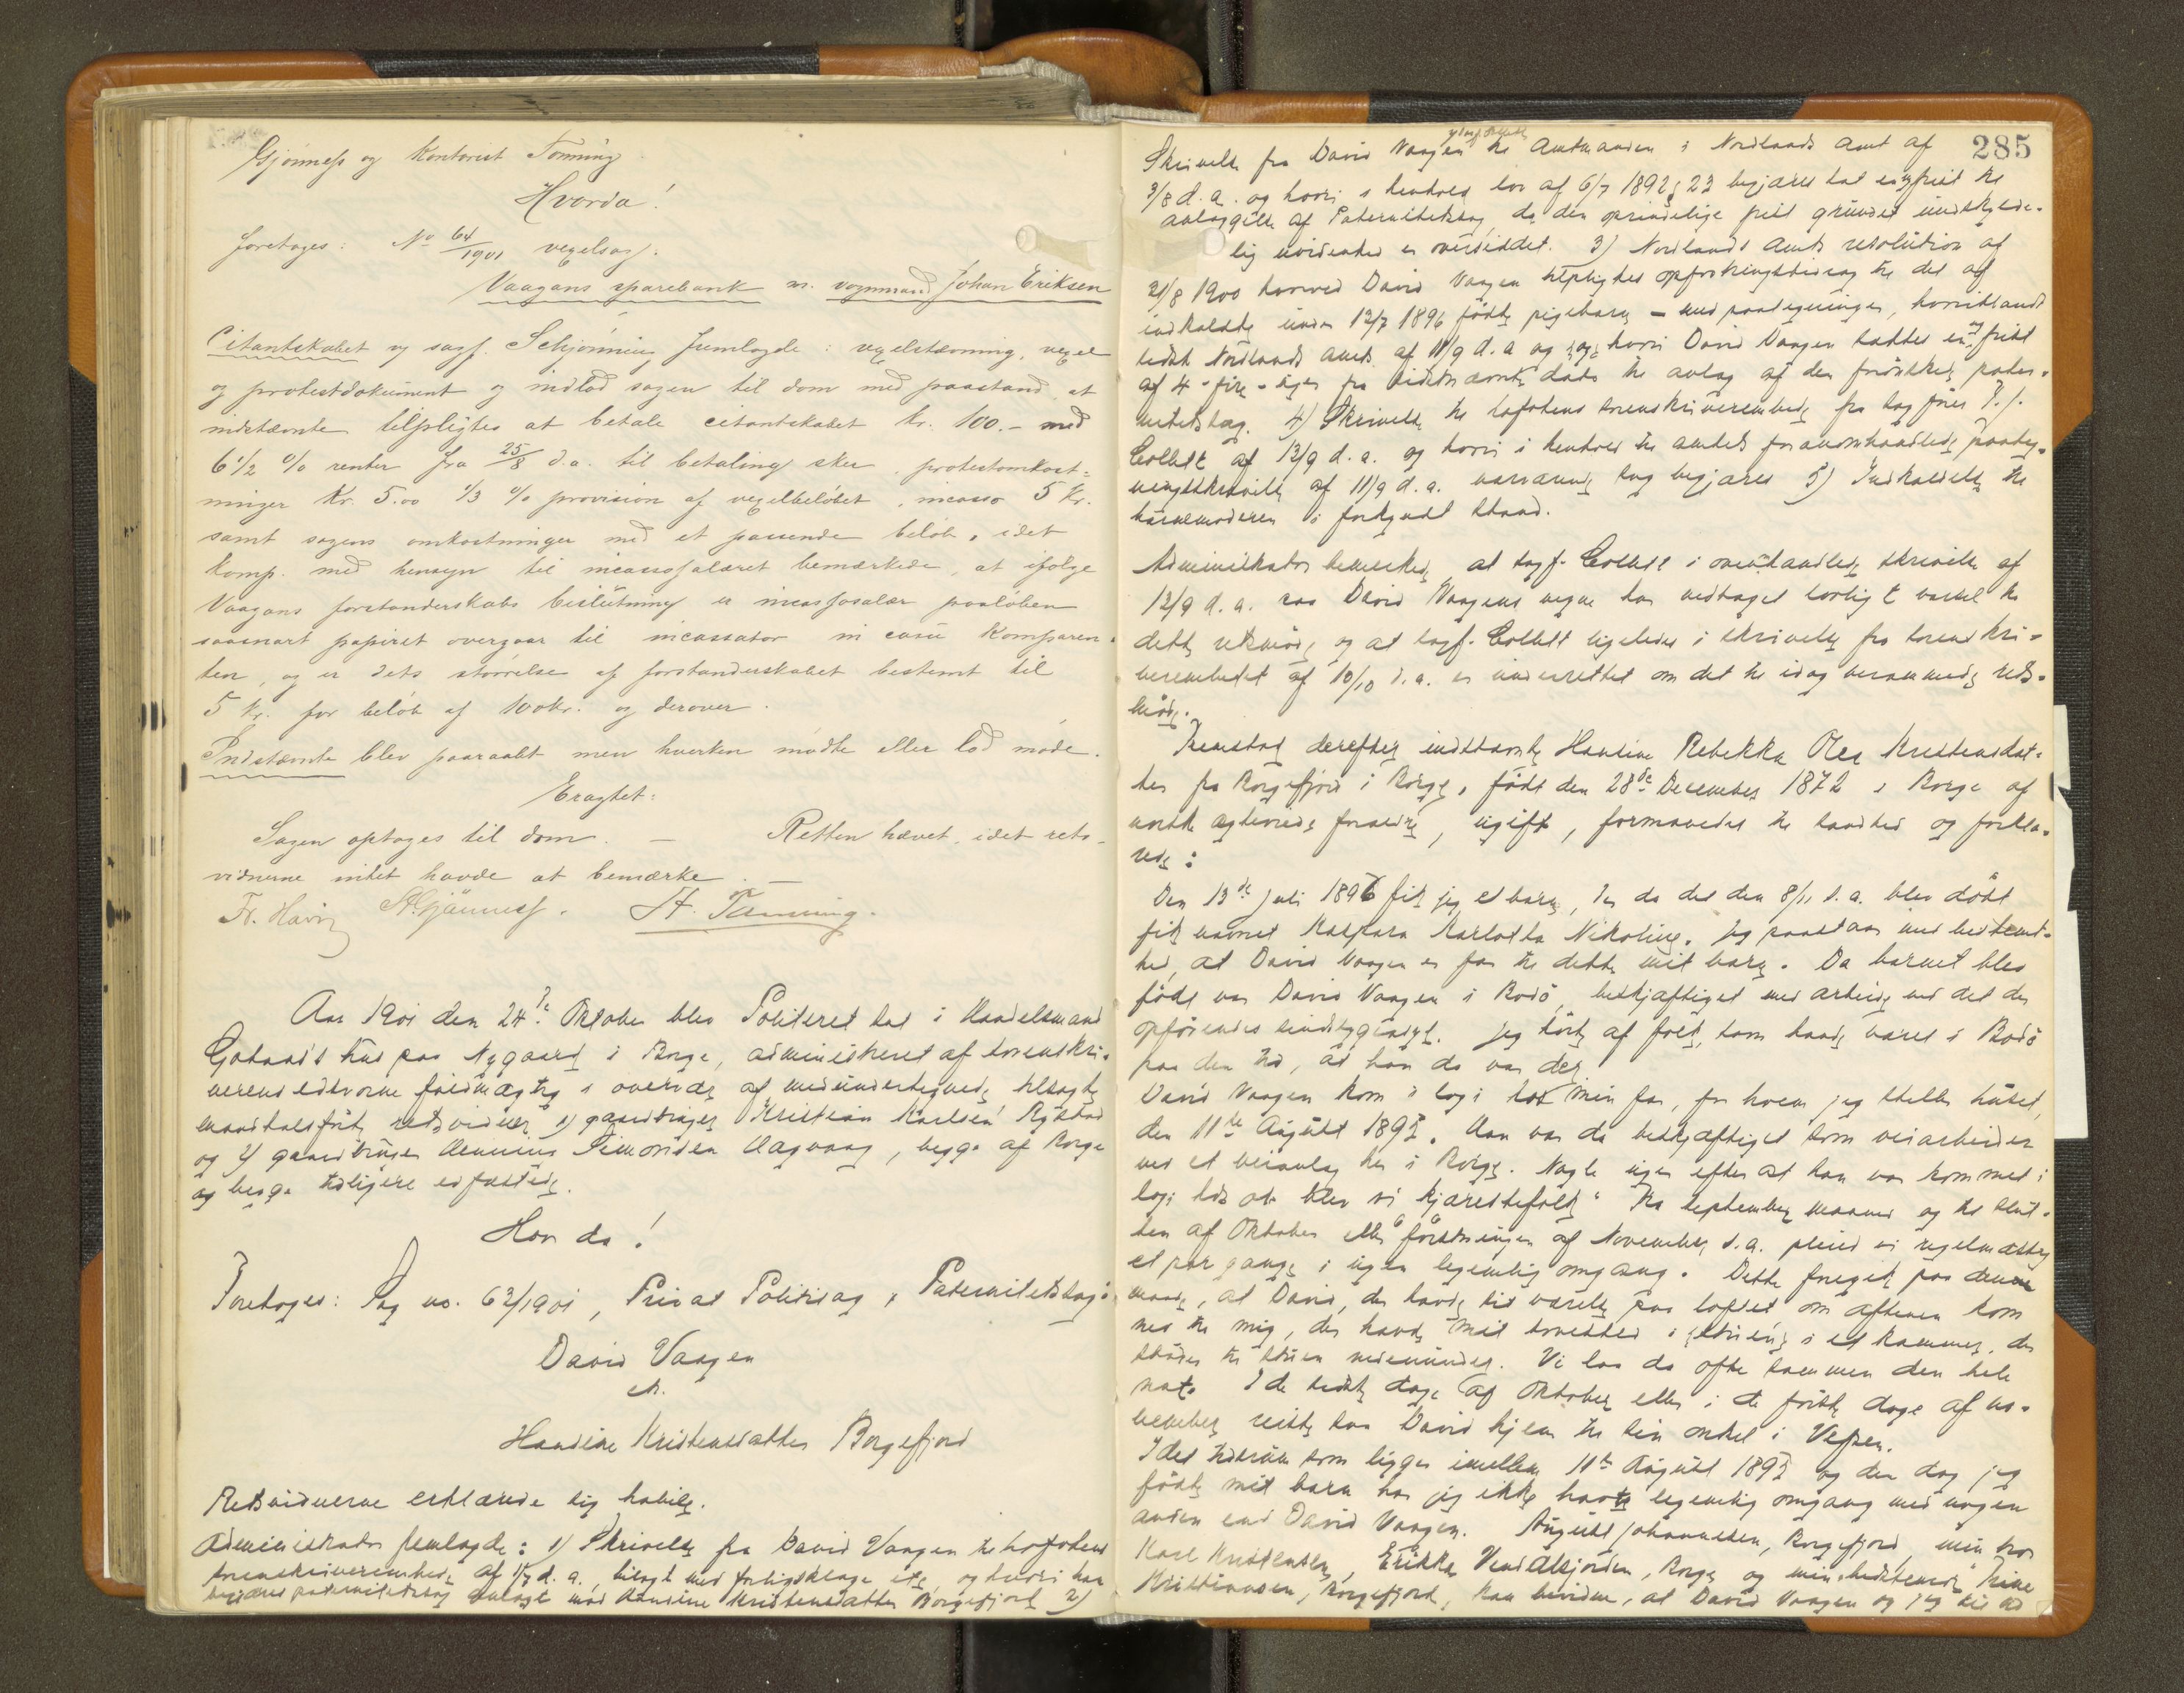 Gjønness og Kontorist Tønning
Hvorda!
foretoges: No 64/1901 vexelsag.
Vaagans sparebank m. vognmand Johan Eriksen
Citantskabet v/ sagf. Schjønning fremlagde: vexelstævning, vexel
og protestdokument og indlod sagen til dom med paastand at
indstævnte tilpligtes at betale citantskabet kr. 100.- med
6 1/2 % renter fra 25/8 d.a. til betaling sker, protestomkost-
ninger Kr. 5.00 1/3 % provision af vexelbeløbet, incasso 5 Kr.
samt sagens omkostninger med et passende beløb, idet
komp. med hensyn til incassosalæret bemærkede, at ifølge
Vaagans forstanderskabs beslutning er incassosalær paaløben
saasnart papiret overgaar til incassator in casu Komparen-
ten, og er dets størrelse af forstanderskabet bestemt til
5 Kr. for beløb af 100kr. og derover.
Indstævnte blev paaraabt men hverken mødte eller lod møde.
Eragtet:
Sagen optages til dom. — Retten hævet, idet rets-
vidnerne intet havde at bemærke. —
Fr. Havig St. Gjönness. H. Tønning.
Aar 1901 den 24de Oktober blev Politiret sat i Handelsmand
hus paa Nygaard i Borge, administreret af sorenskri-
verens edsvorne fuldmægtig i overvær af medundertegnede tilsagte
mandtalsførte retsvidner 1) gaardbruger Kristian Karlsen Rystad
og 2) gaardbruger Simonsen Vagvaag, begge af Borge
og begge tidligere edfæstede.
Hvor da!
Foretoges: Sag no. 63/1901, Privat Politisag, Paternitetssag:
David Vaagen
ctr.
Hansine Kristensdatter Borgefjord
Retsvidnerne erklærede sig habile.
Administrator fremlagde: 1) Skrivelse fra David Vaagen til Lofotens
sorenskriverembede af 1/7 d.a., bilagt med forligsklage etc, og hvori han
begjærer paternitetssag anlagt mod Hansine Kristensdatter Borgefjord 2)
285
Skrivelse fra David Vaagen til Amtmanden i Nordlands amt af
3/8 d.a. og hvori i henhold lov af 6/7 1892 § 23 begjæres sat en ny frist til
anlæggelse af Paternitetssag, da den oprindelige frist grundet undskylde-
lig uvidenhed er oversiddet. 3) Nordlands Amts resolution af
21/8 1900 hvorved David Vaagen tilpligtes opfostringsbidrag til det af
indkaldte under 13/7 1896 fødte pigebarn - med paategninger, hvoriblandt
sidst Nordlands amts af 11/9 d.a. og hvori David Vaagen sattes en ny frist
af 4 - fire - uger fra sidstnævnte dato til anlæg af den forønskede pater-
nitetssag. 4) Skrivelse til Lofotens sorenskriverembede fra sagfører
Collett af 13/9 d.a. og hvori i henhold til amtets foranomhandlede paateg-
ningsskrivelse af 11/9 d.a. nærværende sag begjæres 5) Indkaldelse til
barnemoderen i forkyndt stand.
Administrator bemærkede, at sagf. Collett i ovenomhandlede skrivelse af
13/9 d.a. paa David Vaagens vegne har vedtaget lovligt varsel til
dette retsmøde, og at sagf. Collett ligeledes i skrivelse fra sorenskri-
verembedet af 10/10 d.a. er underrettet om det til idag berammede rets-
møde.
Fremstod derefter indstævnte Hansine Rebekka Olea Kristensdat-
ter fra Borgefjord i Borge, født den 28de December 1872 i Borge af
norske agtværdige forældre, ugift, formanedes til sandhed og forkla-
rede:
Den 13de juli 1896 fik jeg et barn, der da det den 8/11 s.a. blev døbt
fik navnet Kaspara Karlotta Nikoline. Jeg paastaar med bestemt-
hed, at David Vaagen er far til dette mit barn. Da barnet blev
født var David Vaagen i Bodø, beskjæftiget med arbeide ved det der
opførendes sindssygeasyl. Jeg hørte af folk, som havde været i Bodø
paa den tid, at han da var der.
David Vaagen kom i logi hos min far, for hvem jeg stelte huset,
den 11te August 1895. Han var da beskjæftiget som veiarbeider
ved et veianlæg her i Borge. Nogle uger efter at han var kommet i
logi hos os blev vi „kjærestefolk“. Fra september maaned og til slut-
ten af Oktober eller førstningen af November s.a. pleied vi regelmæssig
et par gange i ugen legemlig omgang. Dette foregik paa denne
maade, at David, der havde sit værelse paa loftet om aftenen kom
ned til mig, der havde mit sovested i et kammer, der
støder til stuen nedenunder. Vi laa da ofte sammen den hele
nat. I de sidste dage af Oktober eller i de første dage af no-
vember reiste saa David hjem til sin onkel i Vefsen.
I det tidsrum som ligger imellem 11te August 1895 og den dag jeg
fødte mit barn har jeg ikke havt legemlig omgang med nogen
anden end David Vaagen. August Johannesen, Borgefjord, min bror
Karl Kristensen, Erikka Vendelsjorden, Borge og min Trine
Kristiansen, Borgefjord, kan bevidne, at David Vaagen og jeg